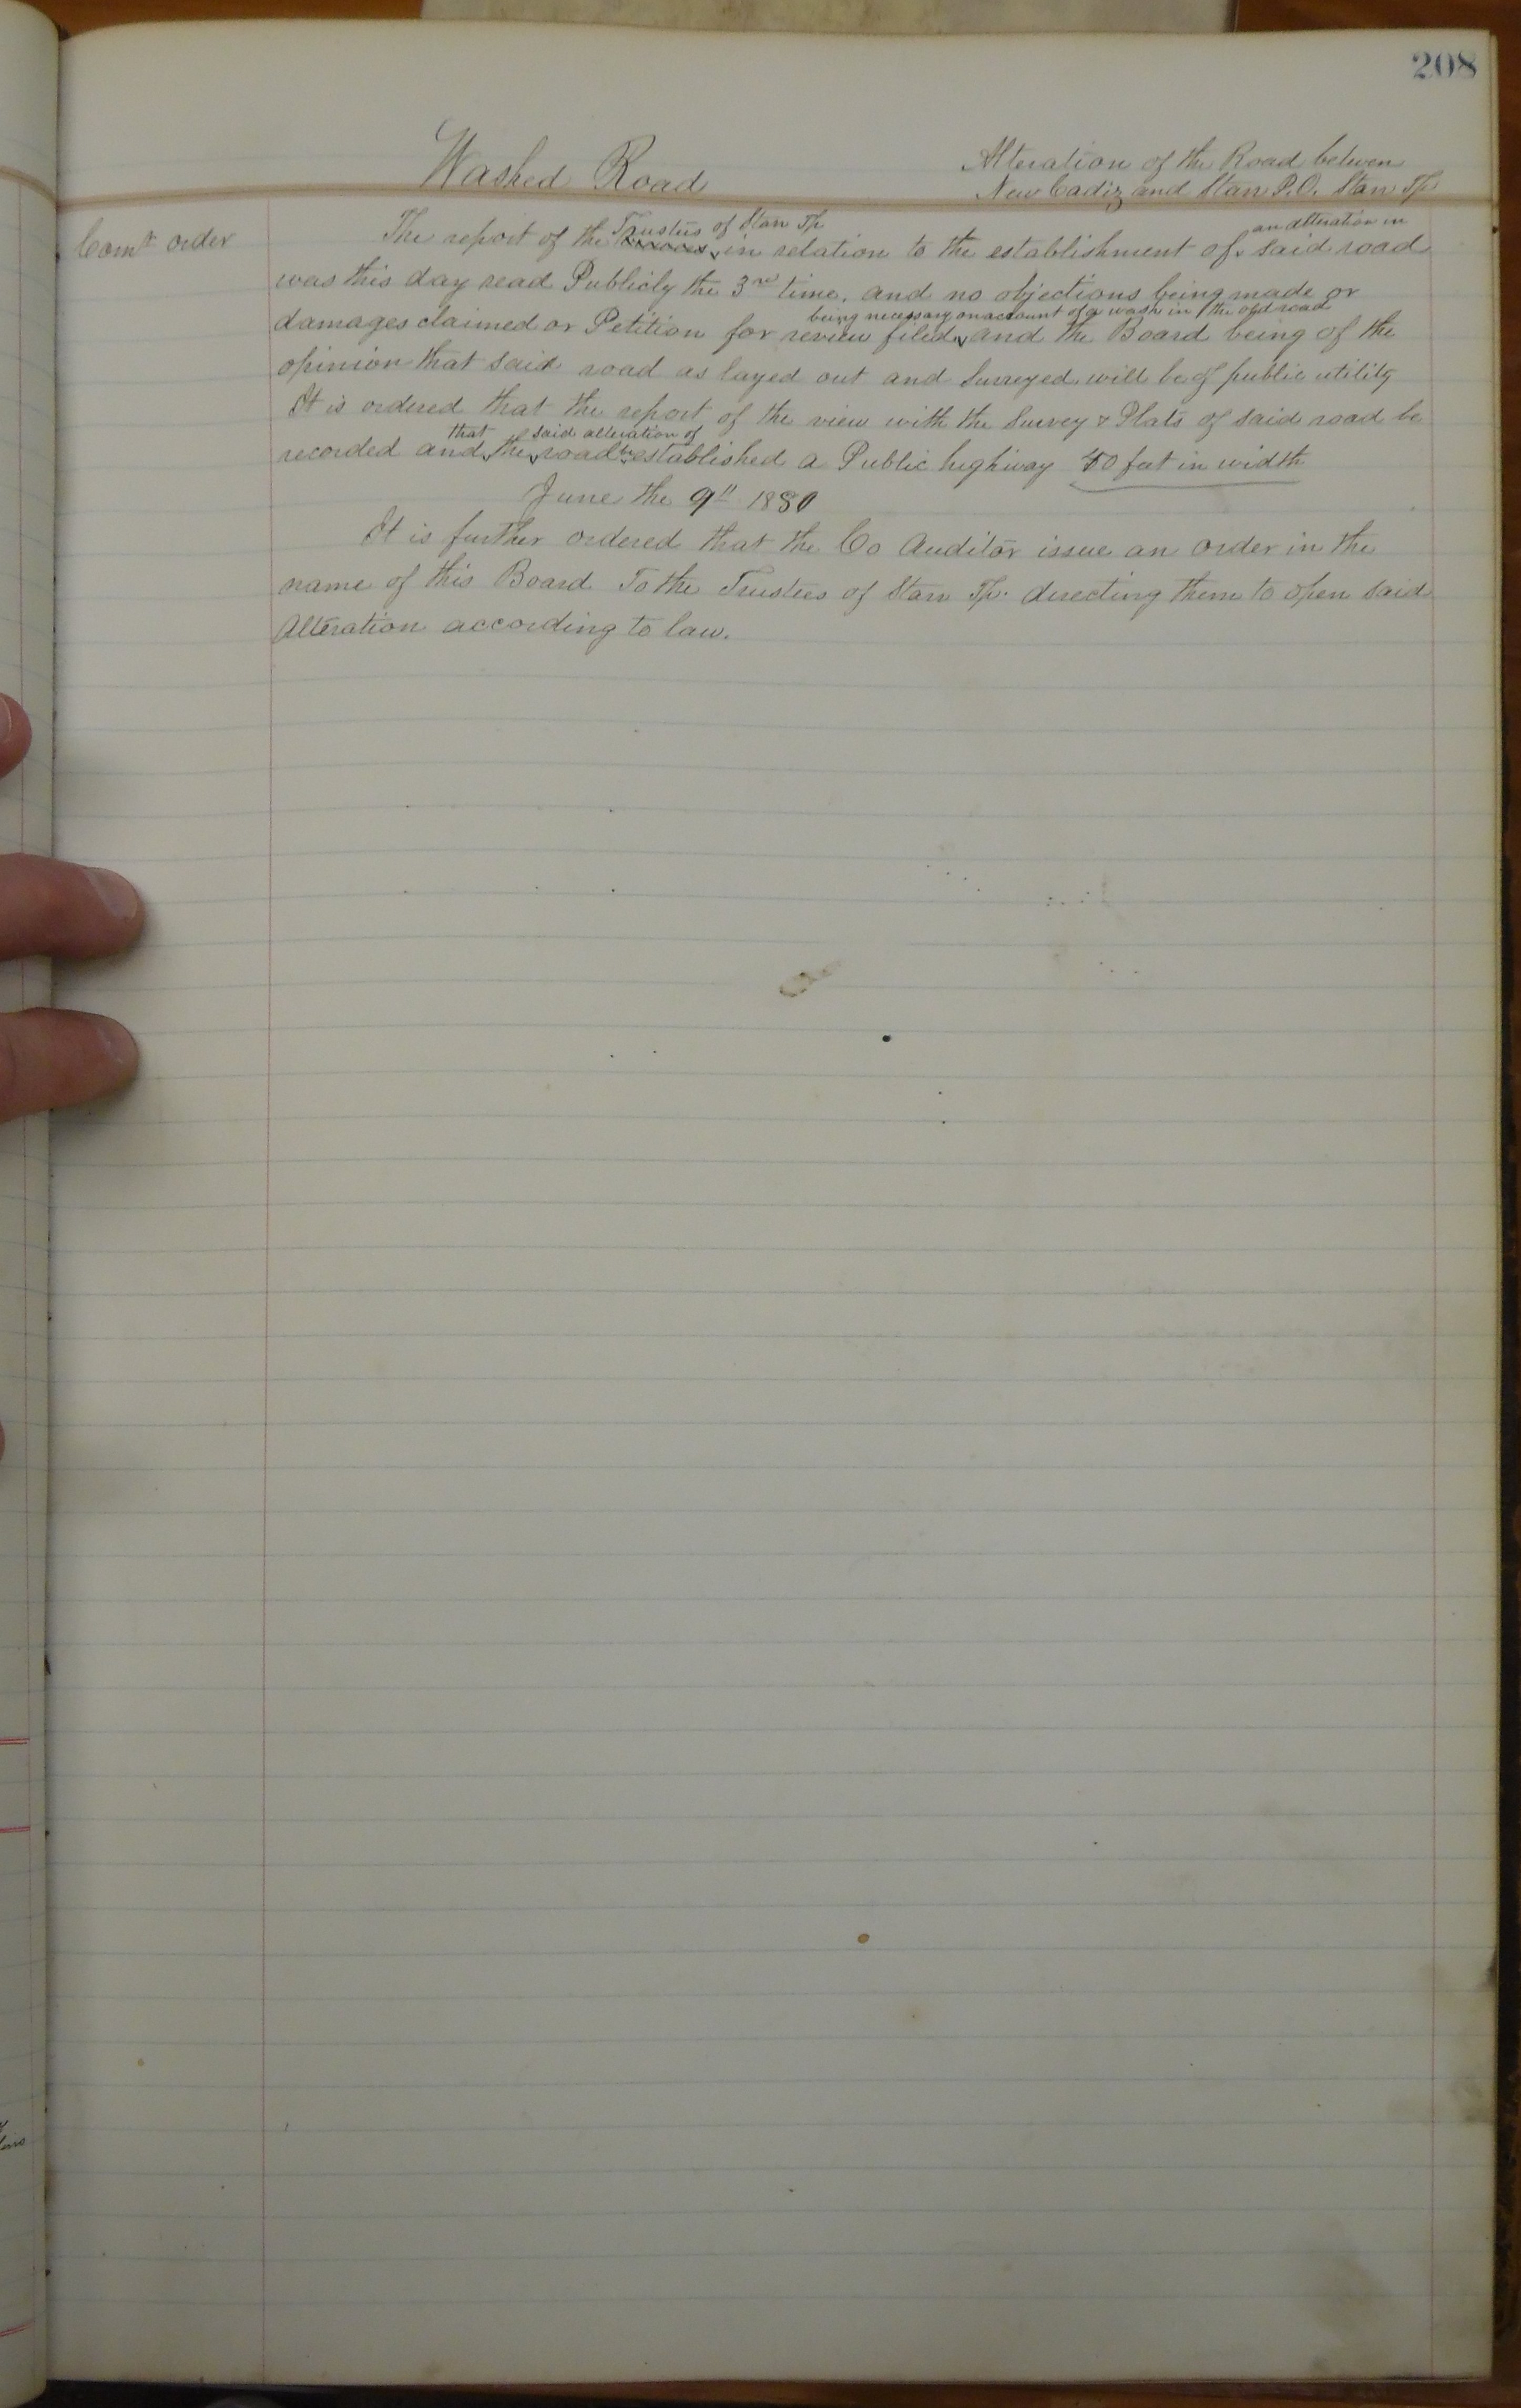 208
Washed Road
Alteration of the Road betwen
New Cadiz and Starr P.O. Starr Tp
Comr order
Trustees of Starr Tp
an alteration in
The report of the in relation to the establishment of said road
was this day read Publicly the 3rd time. and no objections being made or
being necessary on account of a wash in the old road
damages claimed or Petition for review filed and the Board being of the
opinion that said road as layed out and Surveyed will be of public utility
It is ordered that the report of the view with the Survey & Plats of said road be
that said alteration of
recorded and the road be established a Public highway 40 feet in width
June the 9" 1880
It is further ordered that the Co Auditor issue an order in the
name of this Board To the Trustees of Starr Tp. directing them to open said
Alteration according to law.